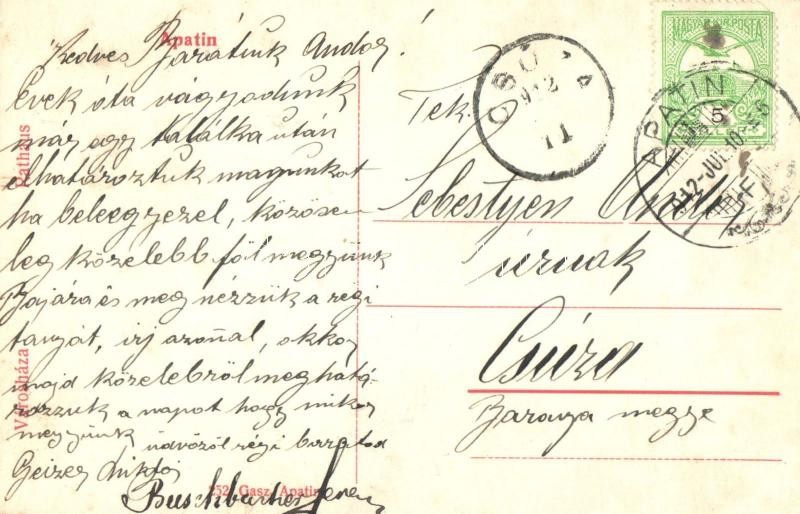 Apatin
Kedves Barátunk Andor!
Évek óta vágyodunk
már egy találka után
elhatároztuk magunkat
ha beleegyezel, közösen
leg közelebb föl megyünk
Bajára és meg nézzük a régi
tanyát, irj azonal, okkor
majd közelebbről meghatá-
rozzuk a napot hogy mikor
megyünk üdvözöl régi barátod
Geizer Miklós
Buschbacher
Rathaus
Városháza
252 Gasz, Apatin
Tek.
Sebestyén
úrnak
Csúza
Baranya megye
MAGYAR KIR. POSTA
5
APATIN
912-JUL.10
912
11